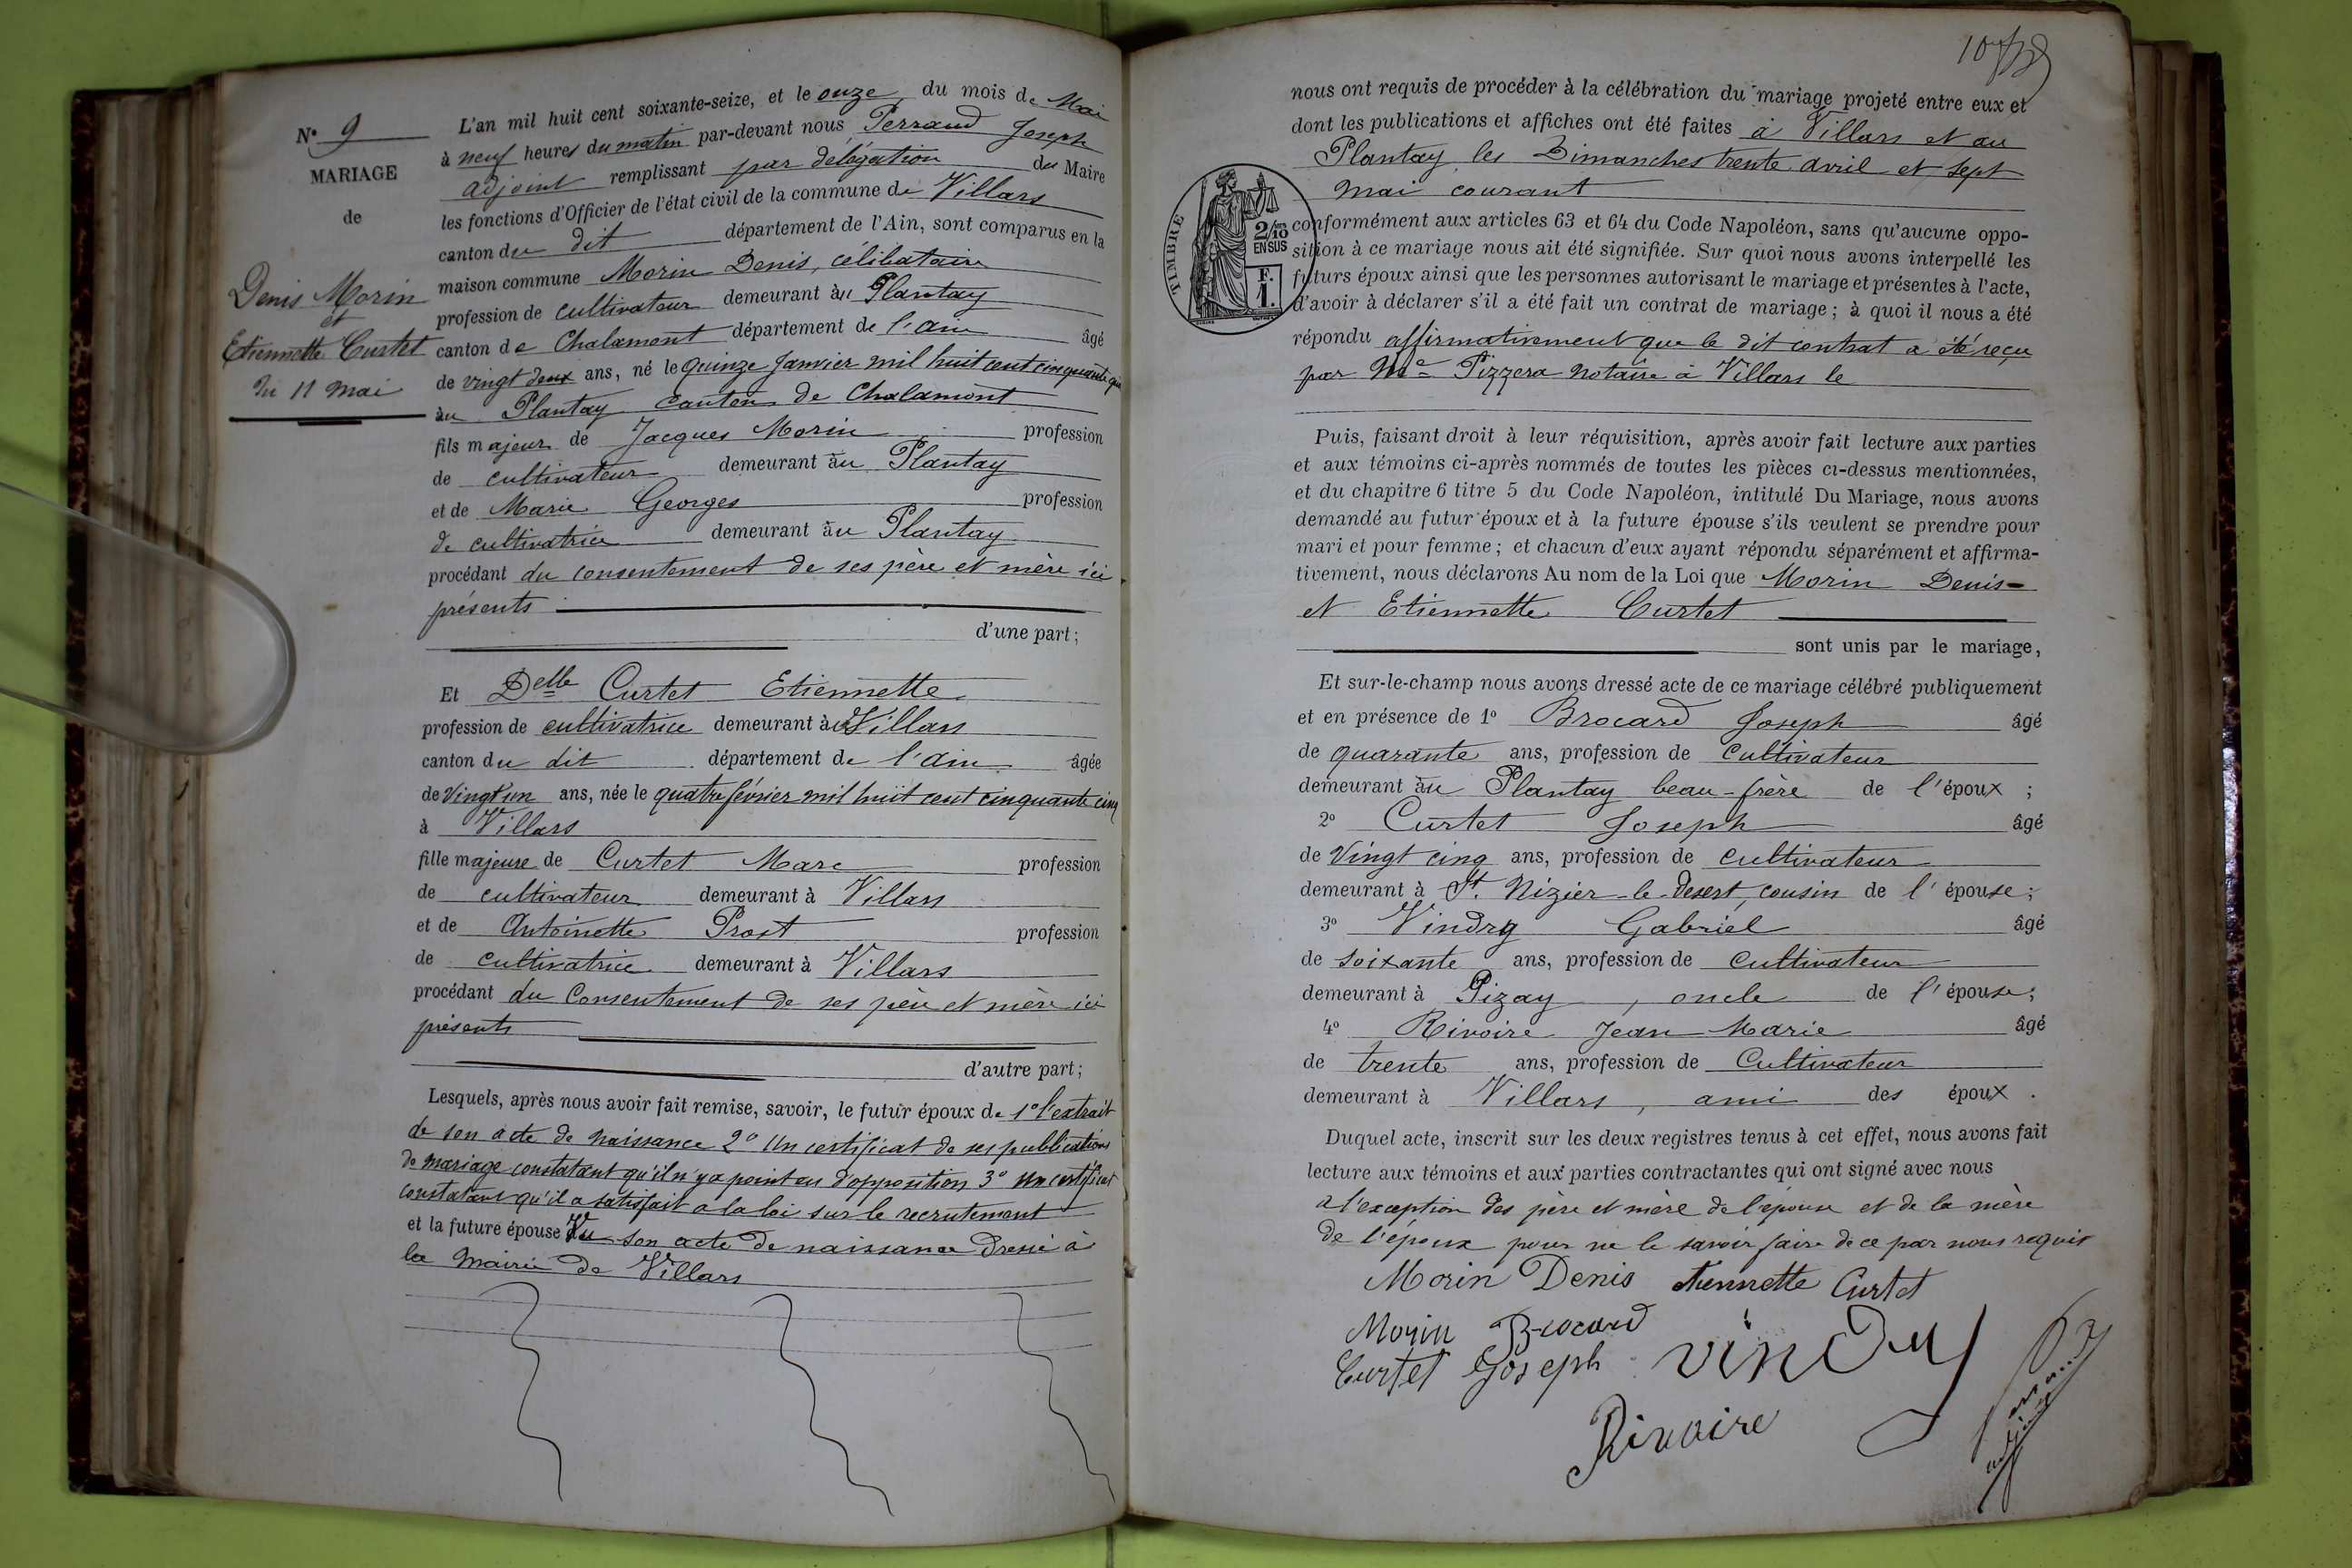 N° 9
MARIAGE
de
Denis Morin
et
Etiennette Curtet
du 11 mai
L'an mil huit cent soixante-seize, et le onze du mois de Mai
à neuf heures du matin par-devant nous Perraud Joseph
adjoint remplissant par délégation du Maire
les fonctions d'Officier de l'état civil de la commune de Villars
canton du dit département de l'Ain, sont comparus en la
maison commune Morin Denis, célibataire
profession de cultivateur demeurant au Plantay
canton de Chalamont département de l'ain âgé
de vingt deux ans, né le quinze Janvier mil huit cent cinquante
au Plantay canton de Chalamont
fils majeur de Jacques Morin profession
de cultivateur demeurant au Plantay
et de Marie Georges profession
de cultivatrice demeurant au Plantay
procédant du consentement de ses père et mère ici
présents
d'une part;
Et Delle Curtet Etiennette
profession de cultivatrice demeurant à Villars
canton du dit département de l'ain âgée
de Vingt un ans, née le quatre février mil huit cent cinquante cinq
à Villars
fille majeure de Curtet Marc profession
de cultivateur demeurant à Villars
et de Antoinette Prost profession
de cultivatrice demeurant à Villars
procédant du Consentement de ses père et mère ici
présents
d'autre part;
Lesquels, après nous avoir fait remise, savoir, le futur époux de 1° l'extrait
de son acte de naissance 2° Un certificat de ses publications
de mariage constatant qu'il n'y a point eu d'opposition 3° un certificat
constatant qu'il a satisfait a la loi sur le recrutement
et la future épouse Vu son acte de naissance dressé à
la Mairie de Villars
nous ont requis de procéder à la célébration du mariage projeté entre eux et
dont les publications et affiches ont été faites à Villars et au
Plantay les Dimanches trente avril et sept
mai courant
TIMBRE
2/10
EN SUS
F.
1.
conformément aux articles 63 et 64 du Code Napoléon, sans qu'aucune oppo-
sition à ce mariage nous ait été signifiée. Sur quoi nous avons interpellé les
futurs époux ainsi que les personnes autorisant le mariage et présentes à l'acte,
d'avoir à déclarer s'il a été fait un contrat de mariage; à quoi il nous a été
répondu affirmativement que le dit contrat a été reçu
par Me Pizzera notaire à Villars le
Puis, faisant droit à leur réquisition, après avoir fait lecture aux parties
et aux témoins ci-après nommés de toutes les pièces ci-dessus mentionnées,
et du chapitre 6 titre 5 du Code Napoléon, intitulé Du Mariage, nous avons
demandé au futur époux et à la future épouse s'ils veulent se prendre pour
mari et pour femme; et chacun d'eux ayant répondu séparément et affirma-
tivement, nous déclarons Au nom de la Loi que Morin Denis
et Etiennette Curtet
sont unis par le mariage,
Et sur-le-champ nous avons dressé acte de ce mariage célébré publiquement
et en présence de 1° Brocard Joseph âgé
de quarante ans, profession de Cultivateur
demeurant au Plantay beau-frère de l'époux ;
2° Curtet Joseph âgé
de Vingt cinq ans, profession de cultivateur
demeurant à St. Nizier-le-Desert, cousin de l'épouse;
3° Vindry Gabriel âgé
de soixante ans, profession de cultivateur
demeurant à Pizay, oncle de l'épouse;
4° Rivoire Jean Marie âgé
de trente ans, profession de Cultivateur
demeurant à Villars, ami des époux .
Duquel acte, inscrit sur les deux registres tenus à cet effet, nous avons fait
lecture aux témoins et aux parties contractantes qui ont signé avec nous
a l'exception des père et mère de l'épouse et de la mère
de l'époux pour ne le savoir faire de ce par nous requis
Morin Denis Etiennette Curtet
Morin Brocard
Curtet Joseph Vindry
Rivoire